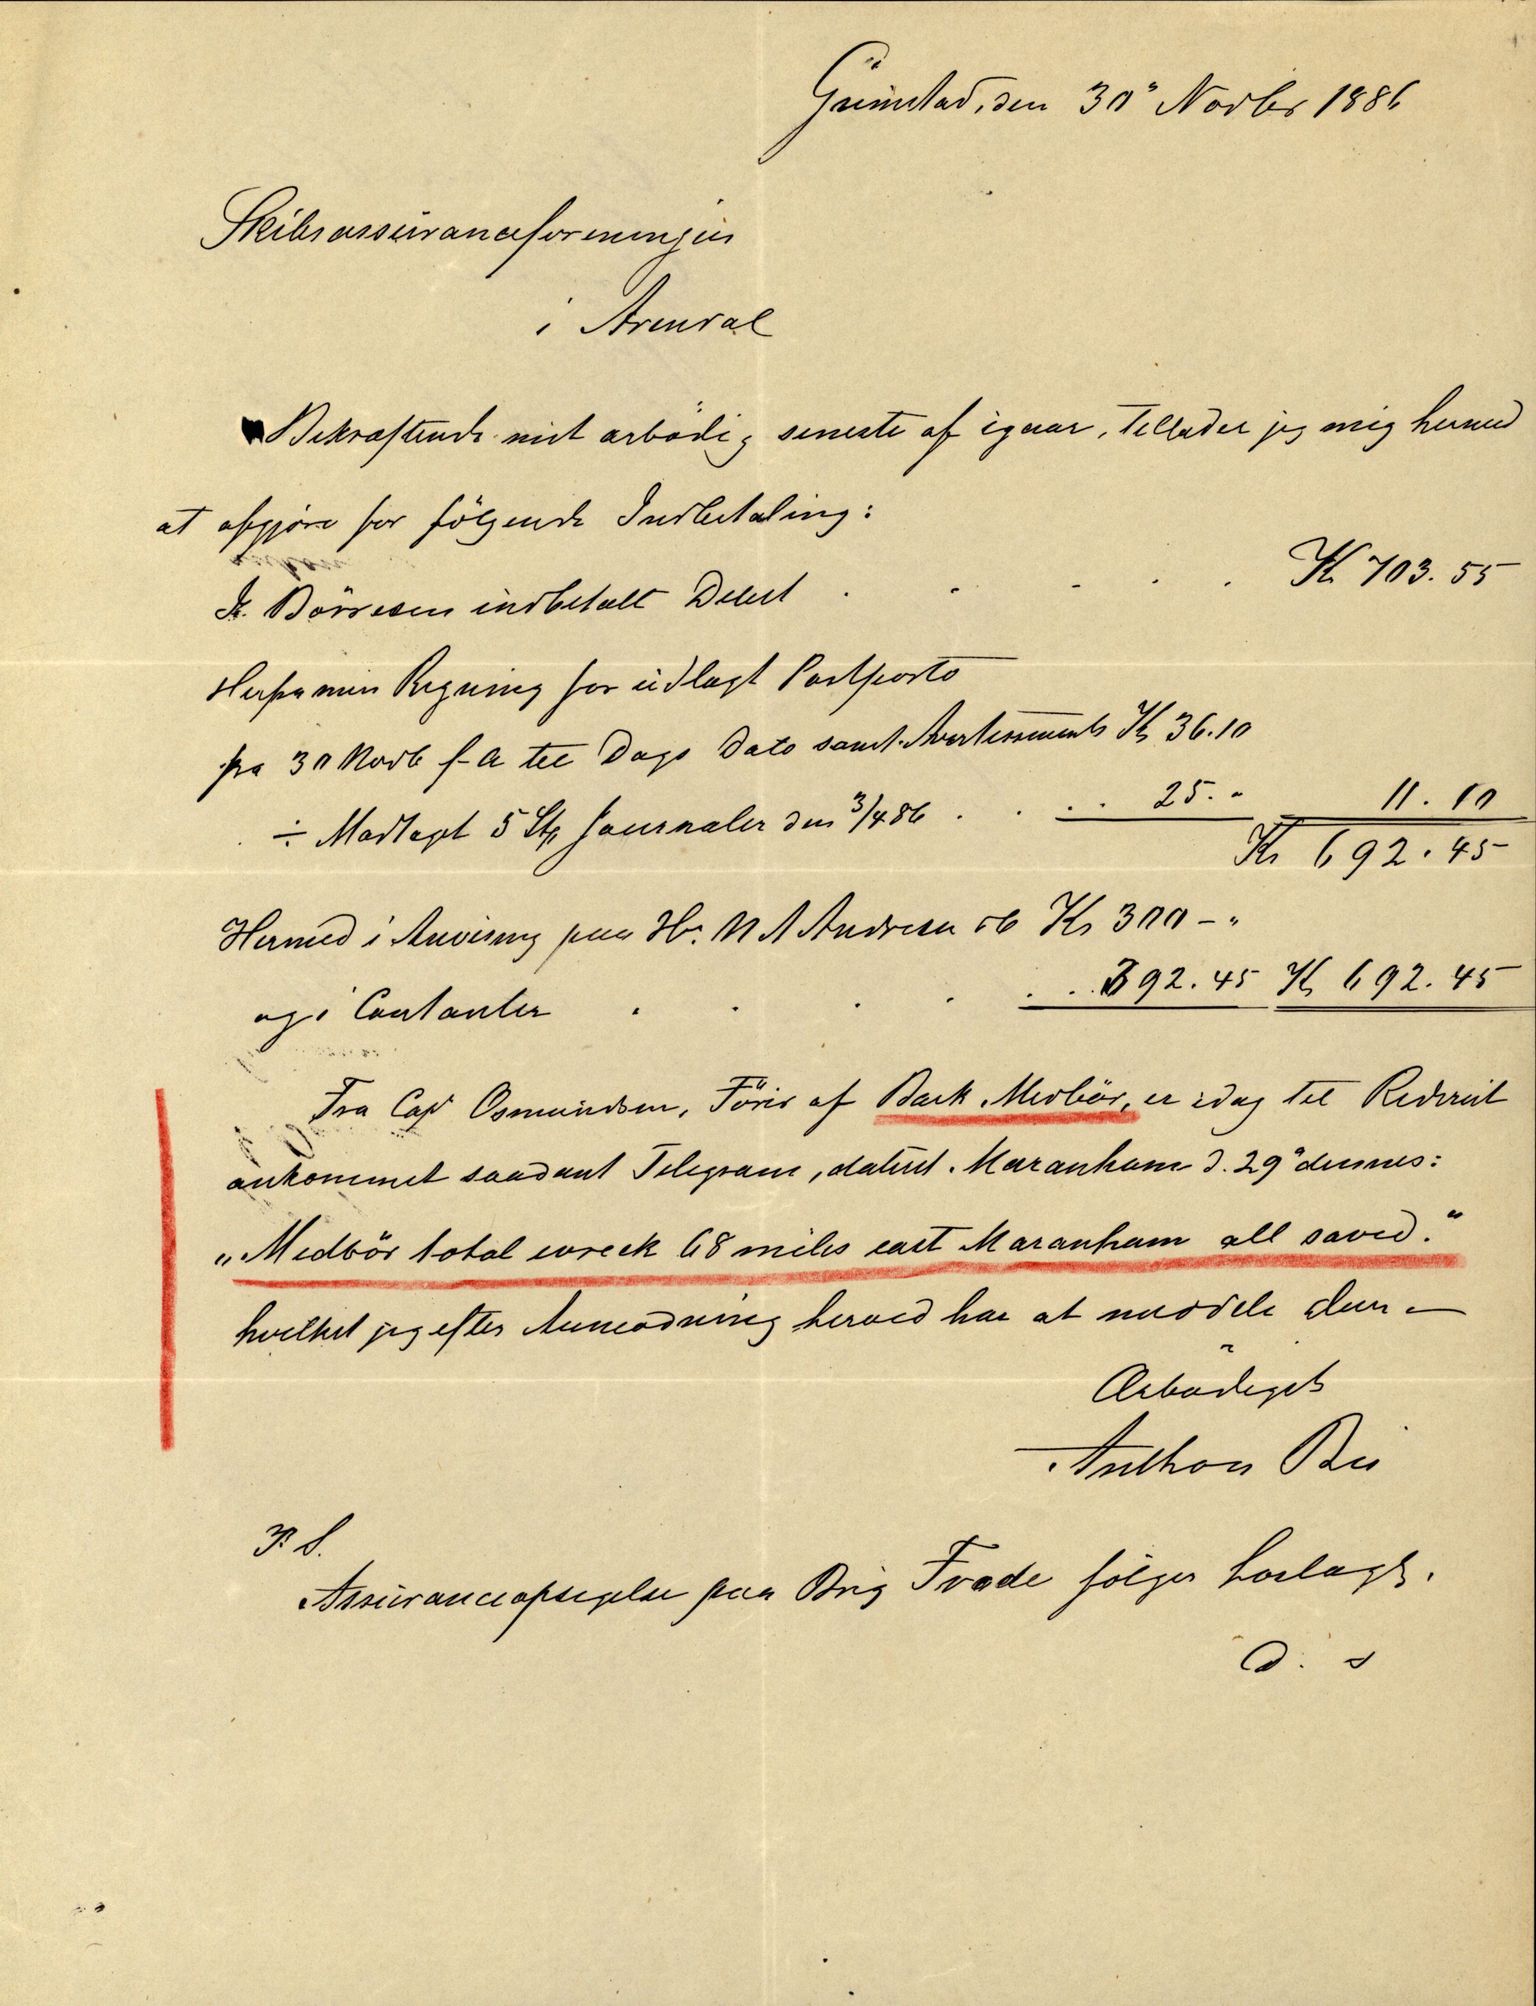 Grimstad, den 30" Novbr 1886
Skibsassuranceforeningen
i Arendal
Bekræftende mit ærbödig seneste af igaar, tillader jeg mig hermed
at afgjöre for fölgende Indbetaling:
Börresen indbetalt Debet . . . . . Kr 703.55
Herfra min Regning for udlagt Postporto
fra 30 Novb f. A til Dags Dato samt Avertissements Kr 36.10
÷ Modtaget 5 Stk Journaler den 3/4 86 . . . . 25. " 11.10
Kr 692.45
Hermed i Anvisning paa Hr. N A Andresen Kr 300 - "
og i Contanter . . . . . . 392.45 Kr 692.45
Fra Cap Osmundsen, Förer af Bark Medbör, er idag til Rederiet
ankommet saadant Telegram, dateret Maranham d. 29" dennes:
"Medbör total wreck 68 miles east Maranham all saved."
hvilket jeg efter Anmodning herved har at meddele dem —
Ærbödigst
Anthon Bie
P. S.
Assuranceopsigelse paa Brig Frode fölger hoslagt.
D. S